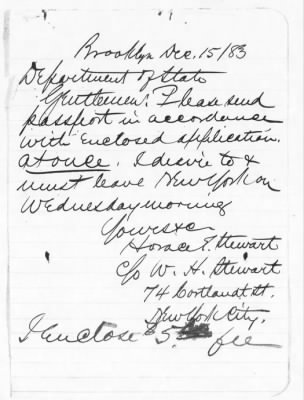 Brooklyn Dec. 15/83
Department of State
Gentlemen: Please send
passport in accordance
with enclosed application
at once. I desire to &
must leave New York on
Wednesday morning
Yours &c
Horace E. Stewart
c/o W. H. Stewart
74 Cortlandt St.
New York City.
I Enclose $5. fee